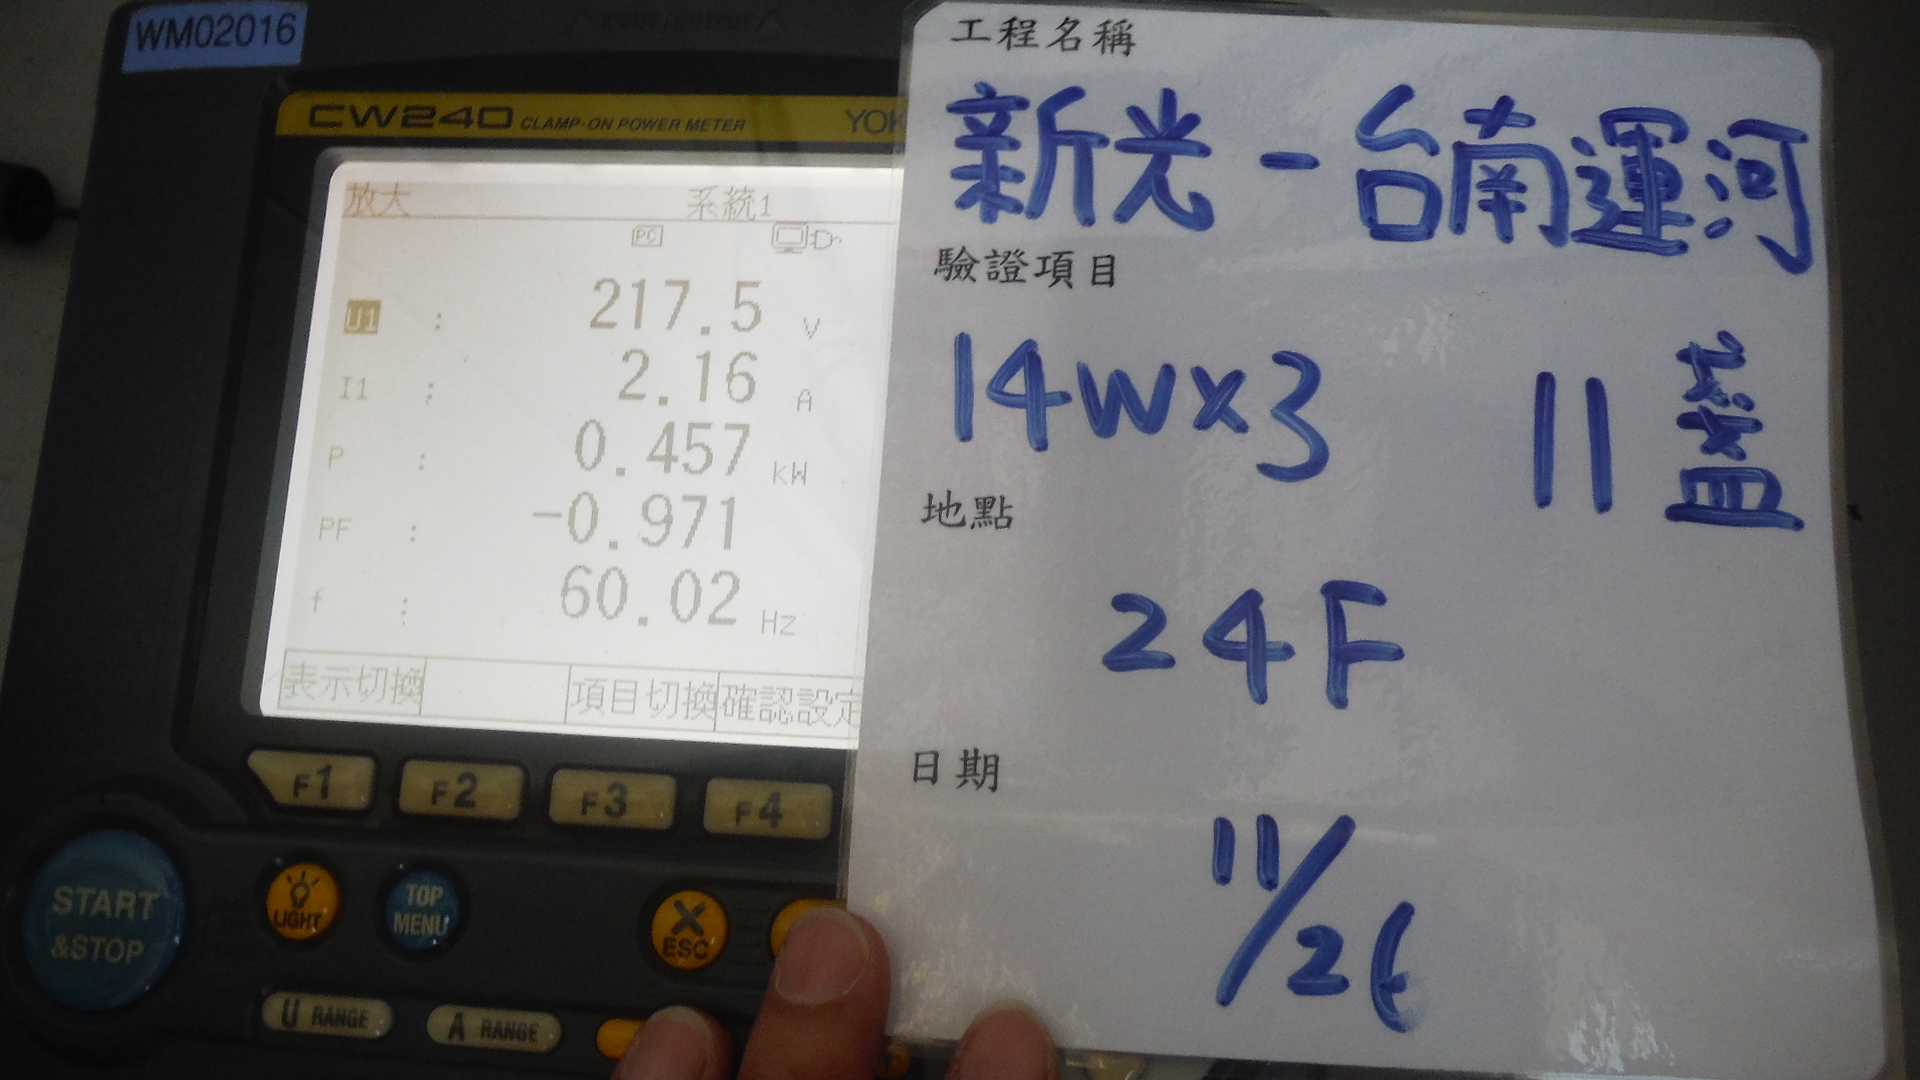 WM02016
CW240 CLAMP-ON POWER METER YOK
放大 系統1
PC
U1 : 217.5 V
I1 : 2.16 A
P : 0.457 kW
PF : -0.971
f : 60.02 Hz
表示切換 項目切換 確認設定
F1 F2 F3 F4
START &STOP
LIGHT
TOP MENU
ESC
U RANGE
A RANGE
工程名稱
新光-台南運河
驗證項目
14W×3 11盞
地點
24F
日期
11/26